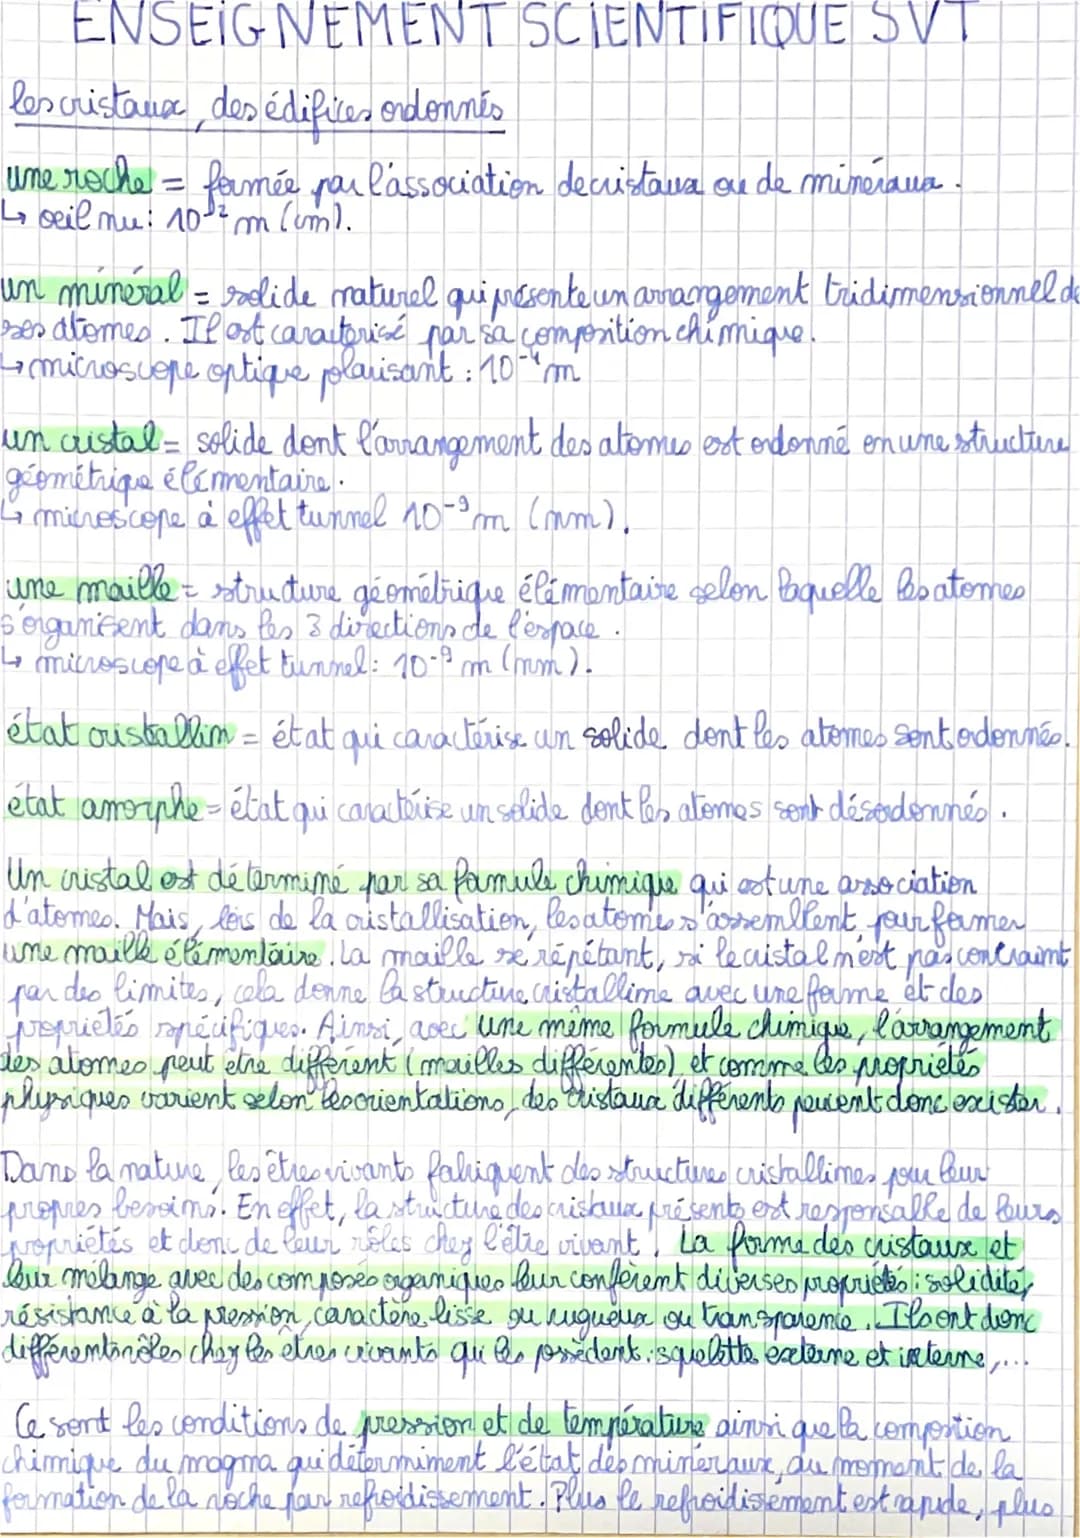 ENSEIGNEMENT SCIENTIFIQUE SVT
les cristaux, des édifices ordonnés
une roche = formée par l'association de cristaux ou de minéraux.
↳ oeil nu : 10⁻² m (cm).
un minéral = solide naturel qui présente un arrangement tridimensionnel de
ses atomes. Il est caractérisé par sa composition chimique.
↳ microscope optique polarisant : 10⁻⁴ m
un cristal = solide dont l'arrangement des atomes est ordonné en une structure
géométrique élémentaire.
↳ microscope à effet tunnel 10⁻⁹ m (nm).
une maille = structure géométrique élémentaire selon laquelle les atomes
s'organisent dans les 3 directions de l'espace.
↳ microscope à effet tunnel : 10⁻⁹ m (nm).
état cristallin = état qui caractérise un solide dont les atomes sont ordonnés.
état amorphe = état qui caractérise un solide dont les atomes sont désordonnés.
Un cristal est déterminé par sa formule chimique qui est une association
d'atomes. Mais, lors de la cristallisation, les atomes s'assemblent pour former
une maille élémentaire. La maille se répétant, si le cristal n'est pas contraint
par des limites, cela donne la structure cristalline avec une forme et des
propriétés spécifiques. Ainsi, avec une même formule chimique, l'arrangement
des atomes peut être différent (mailles différentes) et comme les propriétés
physiques varient selon les orientations, des cristaux différents peuvent donc exister.
Dans la nature, les êtres vivants fabriquent des structures cristallines pour leur
propres besoins. En effet, la structure des cristaux présents est responsable de leurs
propriétés et donc de leur rôles chez l'être vivant. La forme des cristaux et
leur mélange avec des composés organiques leur confèrent diverses propriétés : solidité,
résistance à la pression, caractère lisse ou rugueux ou transparence. Ils ont donc
différents rôles chez les êtres vivants qui les possèdent : squelette externe et interne,...
Ce sont les conditions de pression et de température ainsi que la compostion
chimique du magma qui déterminent l'état des minéraux, au moment de la
formation de la roche par refroidissement. Plus le refroidissement est rapide, plus